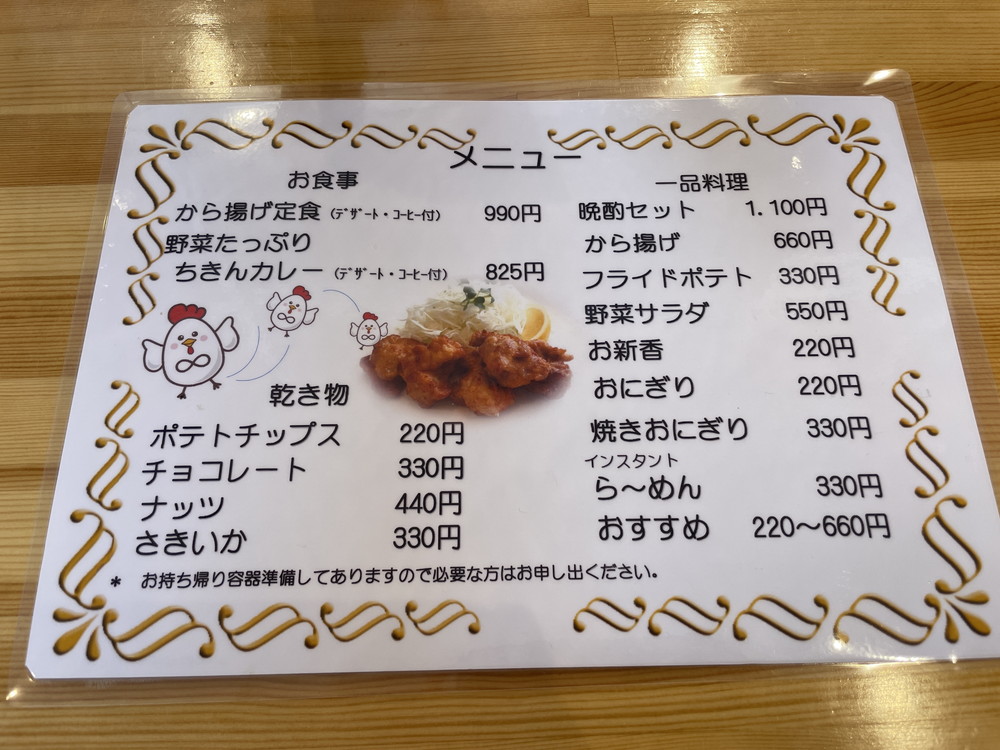 メニュー
お食事
から揚げ定食(ﾃﾞｻﾞｰﾄ・ｺｰﾋｰ付) 990円
野菜たっぷり
ちきんカレー(ﾃﾞｻﾞｰﾄ・ｺｰﾋｰ付) 825円
乾き物
ポテトチップス 220円
チョコレート 330円
ナッツ 440円
さきいか 330円
一品料理
晩酌セット 1.100円
から揚げ 660円
フライドポテト 330円
野菜サラダ 550円
お新香 220円
おにぎり 220円
焼きおにぎり 330円
インスタント
ら～めん 330円
おすすめ 220～660円
* お持ち帰り容器準備してありますので必要な方はお申し出ください。